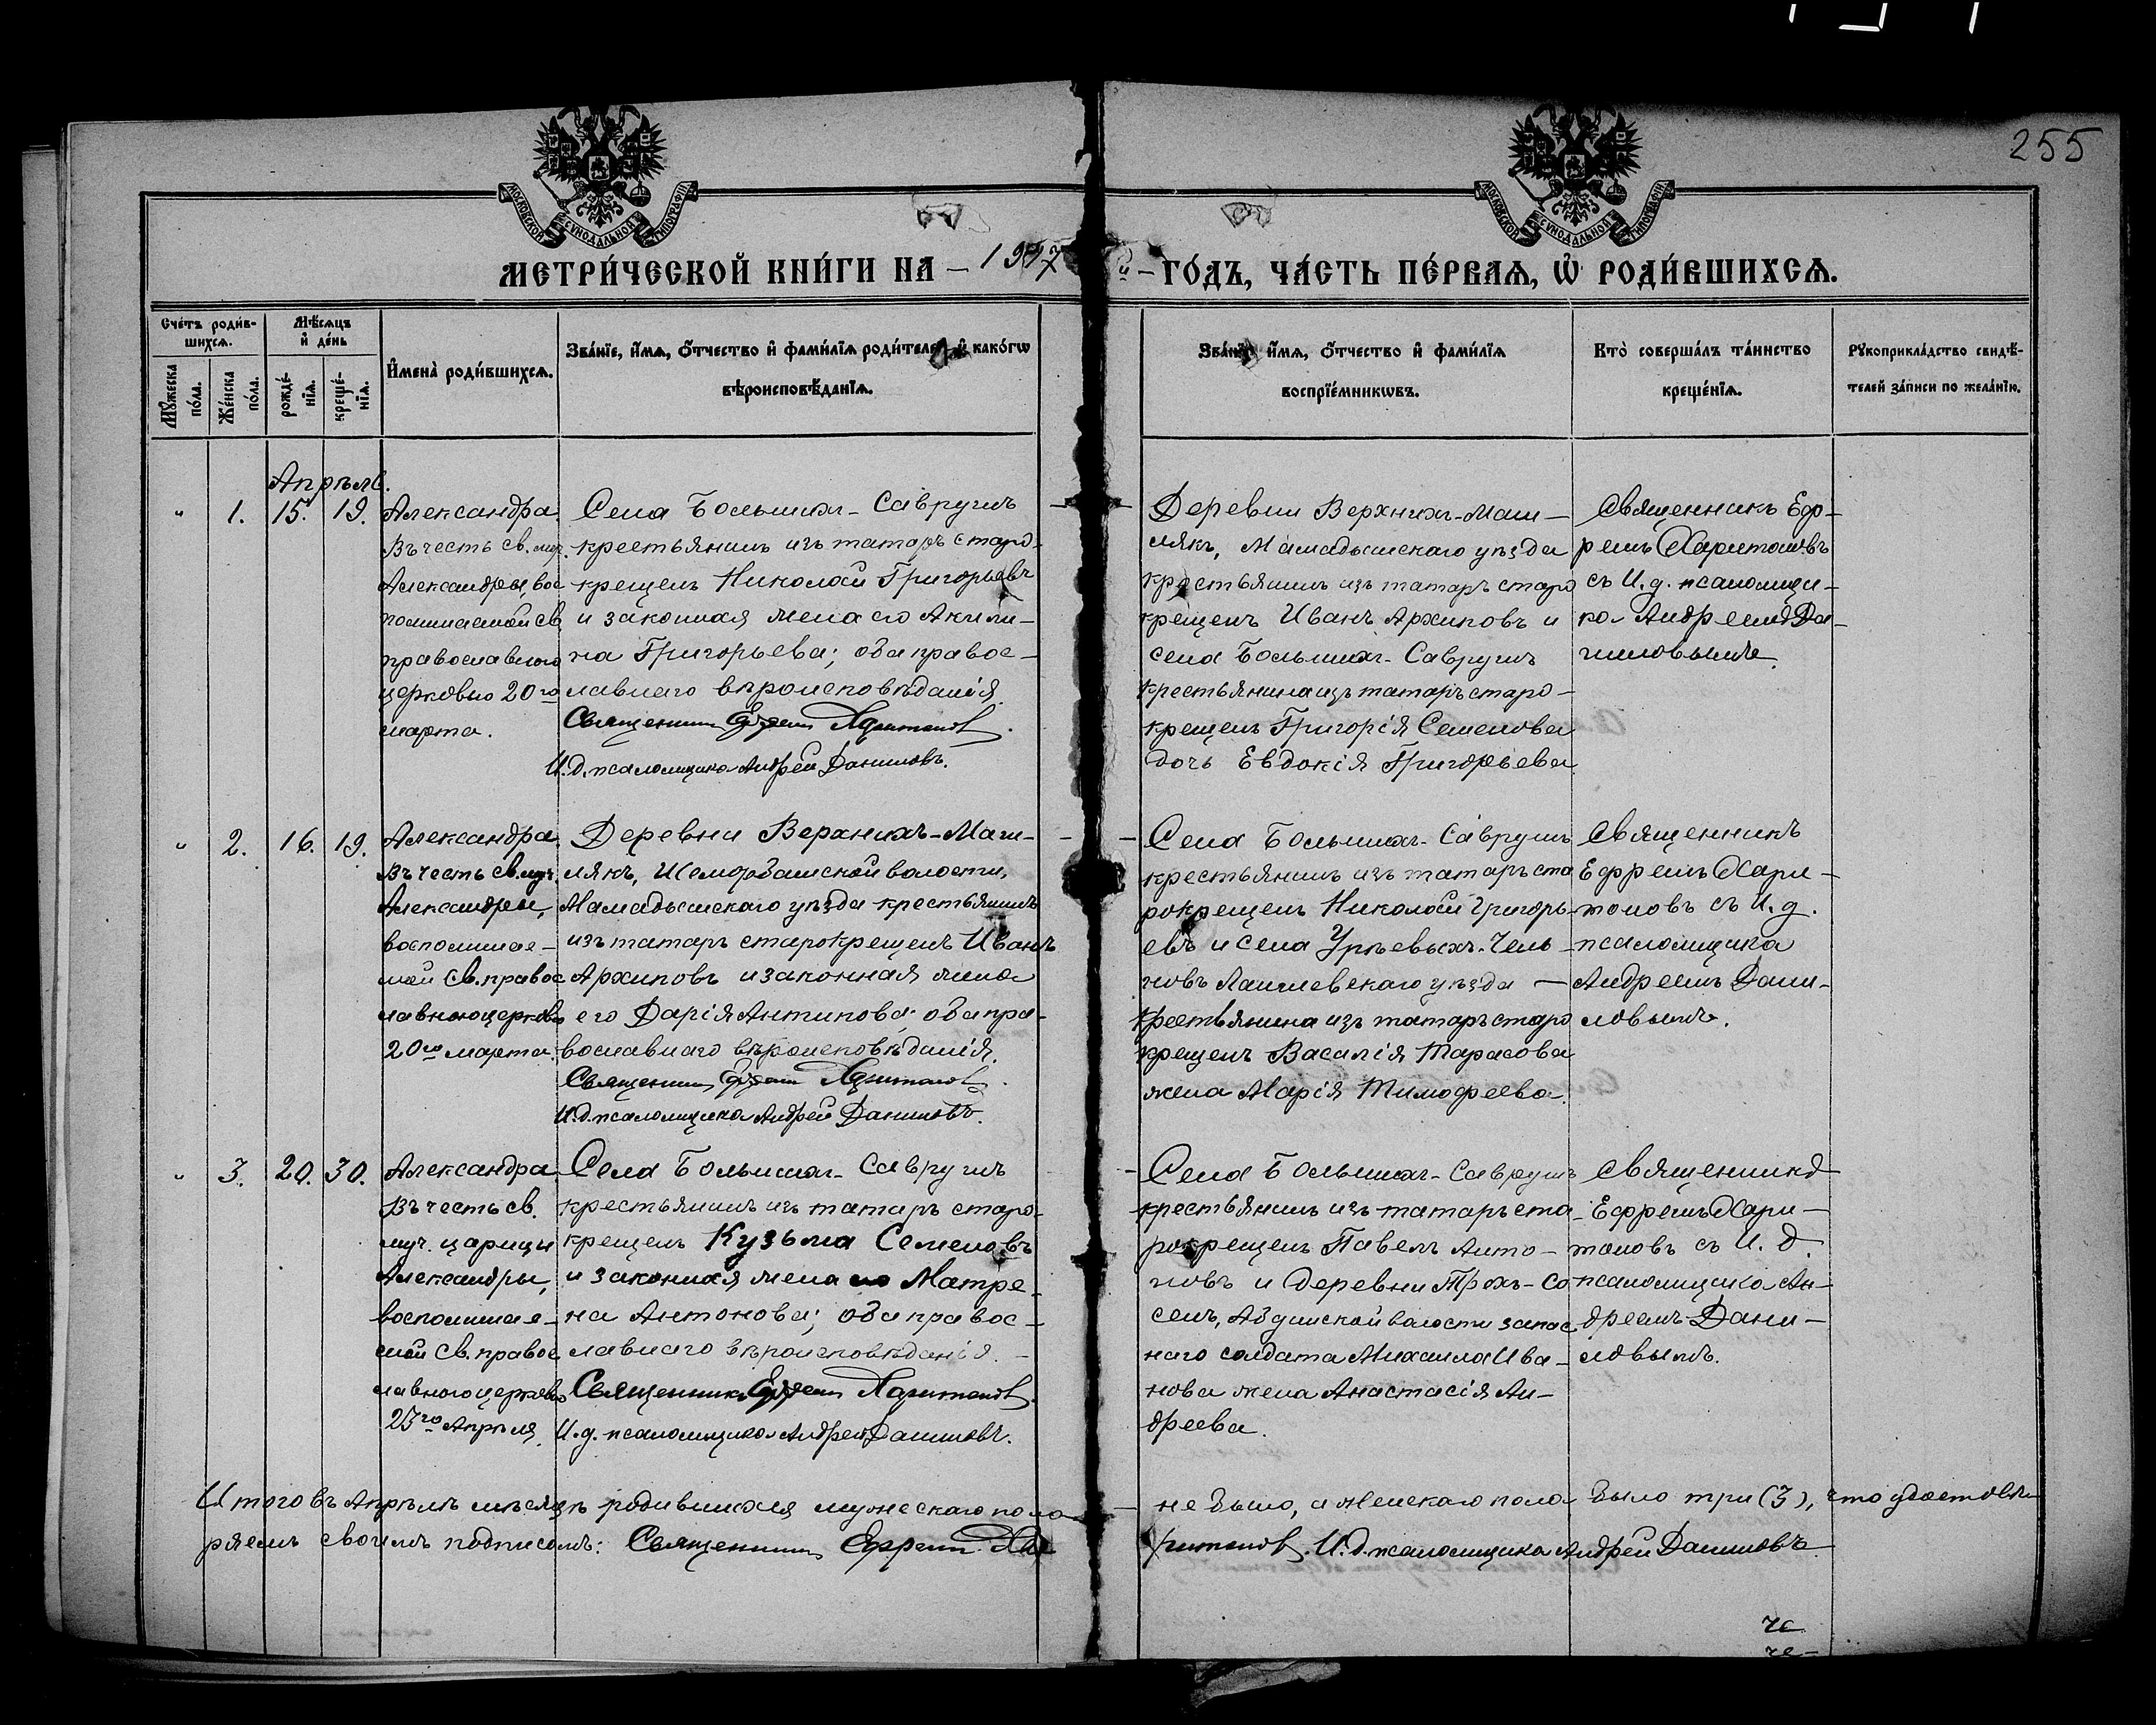 255
МОСКОВСКОЙ СѴНОДАЛЬНОЙ ТИПОГРАФІИ
МОСКОВСКОЙ СѴНОДАЛЬНОЙ ТИПОГРАФІИ
МЕТРИ́ЧЕСКОЙ КНИ́ГИ НА — 1907 й — ГО́ДЪ, ЧА́СТЬ ПЕ́РВАѦ, Ѡ҆ РОДИ́ВШИХСѦ.
Сче́тъ роди́в-
шихсѧ.
Мѣ́сѧцъ
и҆ де́нь
Мꙋ́жеска
по́ла.
Же́нска
по́ла.
рожде́-
нїѧ.
креще́-
нїѧ.
И҆мена̀ роди́вшихсѧ.
Зва́нїе, и҆́мѧ, ѻ҆́тчество и҆ фами́лїѧ роди́телей и҆ како́гѡ
вѣроисповѣ́данїѧ.
Зва́нїе, и҆́мѧ, ѻ҆́тчество и҆ фами́лїѧ
воспрїе́мникѡвъ.
Кто̀ соверша́лъ та́инство
креще́нїѧ.
Рꙋкоприкла́дство свидѣ́-
телей за́писи по жела́нїю.
Апрѣль.
" 1. 15. 19.
Александра.
Въ честь св. муч.
Александры, вос
поминаемой св
православною
церковью 20го
марта.
Села Большихъ-Саврушъ
крестьянинъ изъ татаръ старо-
крещенъ Николай Григорьевъ
и законная жена его Акили-
на Григорьева; оба правос-
лавнаго вѣроисповѣданія.
Священникъ Ефремъ Харитоновъ.
И.д. псаломщика Андрей Даниловъ.
Деревни Верхнихъ-Маш-
лякъ, Мамадышскаго уѣзда
крестьянинъ изъ татаръ старо
крещенъ Иванъ Архиповъ и
села Большихъ-Саврушъ
крестьянина изъ татаръ старо-
крещенъ Григорія Семенова
дочь Евдокія Григорьева.
Священникъ Еф-
ремъ Харитоновъ
съ И.д. псаломщи-
ка Андреемъ Да-
ниловымъ.
" 2. 16. 19.
Александра
Въ честь св. муч.
Александры,
воспоминае-
мой св. правос
лавною церковью
20го марта.
Деревни Верхнихъ-Маш-
лякъ, Шеморбашской волости,
Мамадышскаго уѣзда крестьянинъ
изъ татаръ старокрещенъ Иванъ
Архиповъ и законная жена
его Дарія Антипова; оба пра-
вославнаго вѣроисповѣданія.
Священникъ Ефремъ Харитоновъ.
И.д. псаломщика Андрей Даниловъ.
Села Большихъ-Саврушъ
крестьянинъ изъ татаръ ста
рокрещенъ Николай Григорь-
евъ и села Урѣевыхъ-Челн
новъ Лаишевскаго уѣзда —
крестьянина изъ татаръ старо
крещенъ Василія Тарасова
жена Марія Тимофеева.
Священникъ
Ефремъ Хари-
тоновъ съ И.д.
псаломщика
Андреемъ Дани-
ловымъ.
" 3. 20. 30.
Александра
Въ честь св.
муч. царицы
Александры,
воспоминае-
мой св. правос
лавною церковью
23го Апрѣля.
Села Большихъ-Саврушъ
крестьянинъ изъ татаръ старо-
крещенъ Кузьма Семеновъ
и законная жена его Матре-
на Антонова; оба правос-
лавнаго вѣроисповѣданія.
Священникъ Ефремъ Харитоновъ.
И.д. псаломщика Андрей Даниловъ.
Села Большихъ-Саврушъ
крестьянинъ изъ татаръ ста-
рокрещенъ Павелъ Анто-
новъ и деревни Трехъ-Со
сенъ, Абдинской волости запас
наго солдата Михаила Ива-
нова жена Анастасія Ан-
дреева.
Священникъ
Ефремъ Хари-
тоновъ съ И.д.
псаломщика Ан-
дреемъ Дани-
ловымъ.
Итого въ Апрѣлѣ мѣсяцѣ родившихся мужескаго пола — не было, а женскаго пола было три (3), что удостовѣ-
ряемъ своимъ подписомъ: Священникъ Ефремъ Харитоновъ. И.д. псаломщика Андрей Даниловъ.